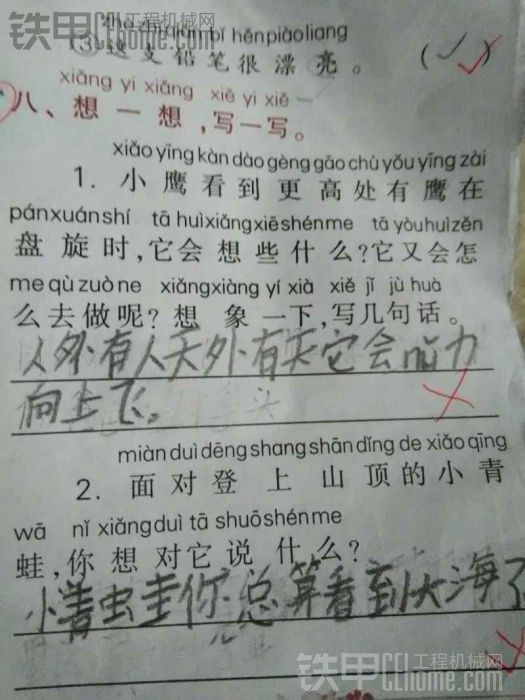 铁甲工程机械网
CEhome.com
zhè zhī qiān bǐ hěn piào liang
(3)这支铅笔很漂亮。 (✓)
xiǎng yi xiǎng xiě yi xiě
八、想一想,写一写。
xiǎo yīng kàn dào gèng gāo chù yǒu yīng zài
1. 小鹰看到更高处有鹰在
pán xuán shí tā huì xiǎng xiē shén me tā yòu huì zěn
盘旋时,它会想些什么?它又会怎
me qù zuò ne xiǎng xiàng yí xià xiě jǐ jù huà
么去做呢?想象一下,写几句话。
人外有人天外有天它会努力
向上飞。
miàn duì dēng shang shān dǐng de xiǎo qīng
2. 面对登上山顶的小青
wā nǐ xiǎng duì tā shuō shén me
蛙,你想对它说什么?
小青蛙你总算看到大海了
铁甲工程机械网
CEhome.com